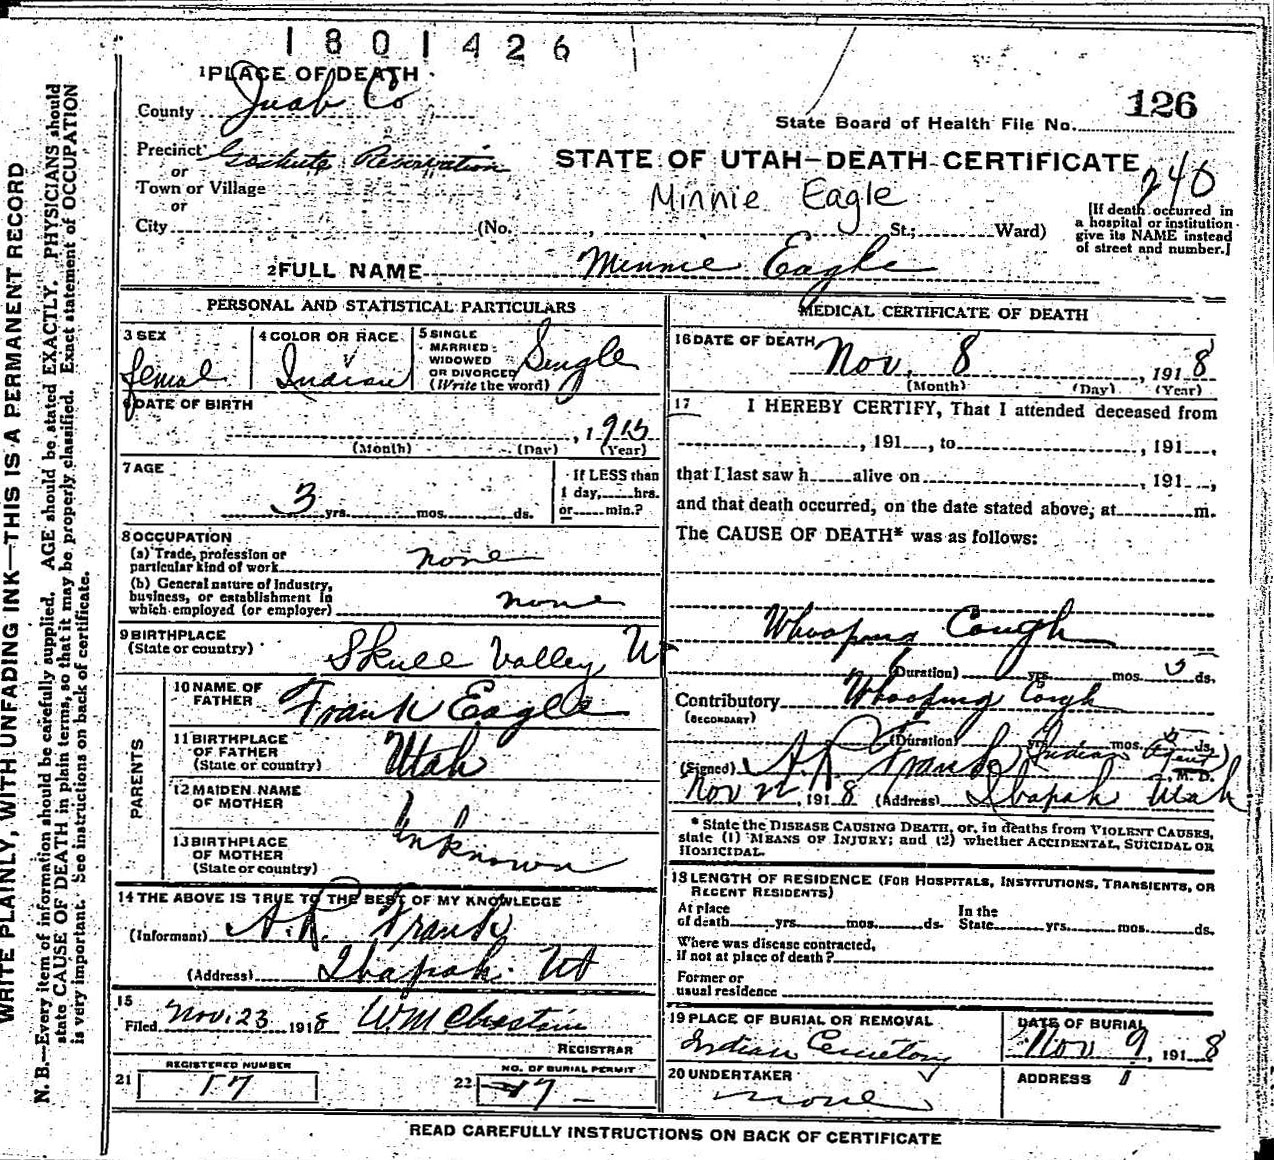 1801426
1 PLACE OF DEATH
County Juab Co
126
State Board of Health File No.
Precinct Goshute Reservation
or
Town or Village
or
City (No. , St.; Ward)
STATE OF UTAH—DEATH CERTIFICATE
240
Minnie Eagle
[If death occurred in
a hospital or institution
give its NAME instead
of street and number.]
2 FULL NAME Minnie Eagle
PERSONAL AND STATISTICAL PARTICULARS
3 SEX
femal
4 COLOR OR RACE
Indian
5 SINGLE
MARRIED
WIDOWED
OR DIVORCED
(Write the word)
Single
6 DATE OF BIRTH
, 1915
(Month) (Day) (Year)
7 AGE
3 yrs. mos. ds.
If LESS than
1 day, hrs.
or min.?
8 OCCUPATION
(a) Trade, profession or
particular kind of work none
(b) General nature of Industry,
business, or establishment in
which employed (or employer) none
9 BIRTHPLACE
(State or country) Skull Valley Ut
PARENTS
10 NAME OF
FATHER Frank Eagle
11 BIRTHPLACE
OF FATHER
(State or country) Utah
12 MAIDEN NAME
OF MOTHER
Unknown
13 BIRTHPLACE
OF MOTHER
(State or country)
14 THE ABOVE IS TRUE TO THE BEST OF MY KNOWLEDGE
(Informant) A.R. Frank
(Address) Ibapah Ut
15
Filed Nov. 23 1918 W.M.
REGISTRAR
REGISTERED NUMBER
21 17
NO. OF BURIAL PERMIT
22 17
MEDICAL CERTIFICATE OF DEATH
16 DATE OF DEATH
Nov. 8 , 1918
(Month) (Day) (Year)
17 I HEREBY CERTIFY, That I attended deceased from
, 191 , to , 191 ,
that I last saw h alive on , 191 ,
and that death occurred, on the date stated above, at m.
The CAUSE OF DEATH* was as follows:
Whooping Cough
(Duration) yrs. mos. 5 ds.
Contributory Whooping Cough
(SECONDARY)
(Duration) yrs. mos. 5 ds.
(Signed) A.R. Frank Indian Agent M. D.
Nov 22, 1918 (Address) Ibapah Utah
* State the DISEASE CAUSING DEATH, or, in deaths from VIOLENT CAUSES,
state (1) MEANS OF INJURY; and (2) whether ACCIDENTAL, SUICIDAL OR
HOMICIDAL.
18 LENGTH OF RESIDENCE (FOR HOSPITALS, INSTITUTIONS, TRANSIENTS, OR
RECENT RESIDENTS)
At place
of death yrs. mos. ds.
In the
State yrs. mos. ds.
Where was disease contracted,
if not at place of death?
Former or
usual residence
19 PLACE OF BURIAL OR REMOVAL
Indian Cemetery
DATE OF BURIAL
Nov 9, 1918
20 UNDERTAKER
none
ADDRESS
READ CAREFULLY INSTRUCTIONS ON BACK OF CERTIFICATE
WRITE PLAINLY, WITH UNFADING INK—THIS IS A PERMANENT RECORD
N. B.—Every item of information should be carefully supplied. AGE should be stated EXACTLY. PHYSICIANS should
state CAUSE OF DEATH in plain terms, so that it may be properly classified. Exact statement of OCCUPATION
is very important. See instructions on back of certificate.